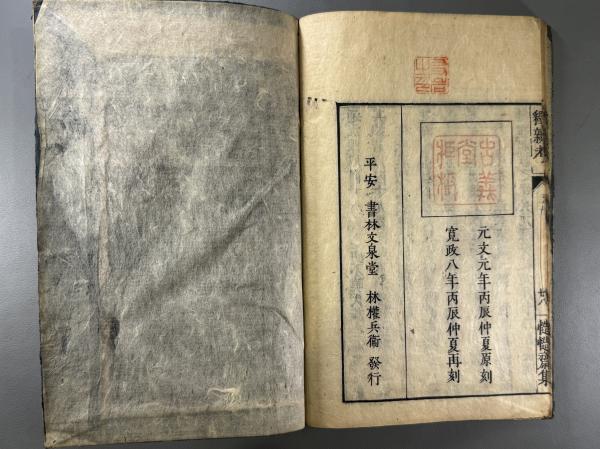 古義堂藏板
元文元年丙辰仲夏原刻
寛政八年丙辰仲夏再刻
平安 書林文泉堂 林權兵衛 發行